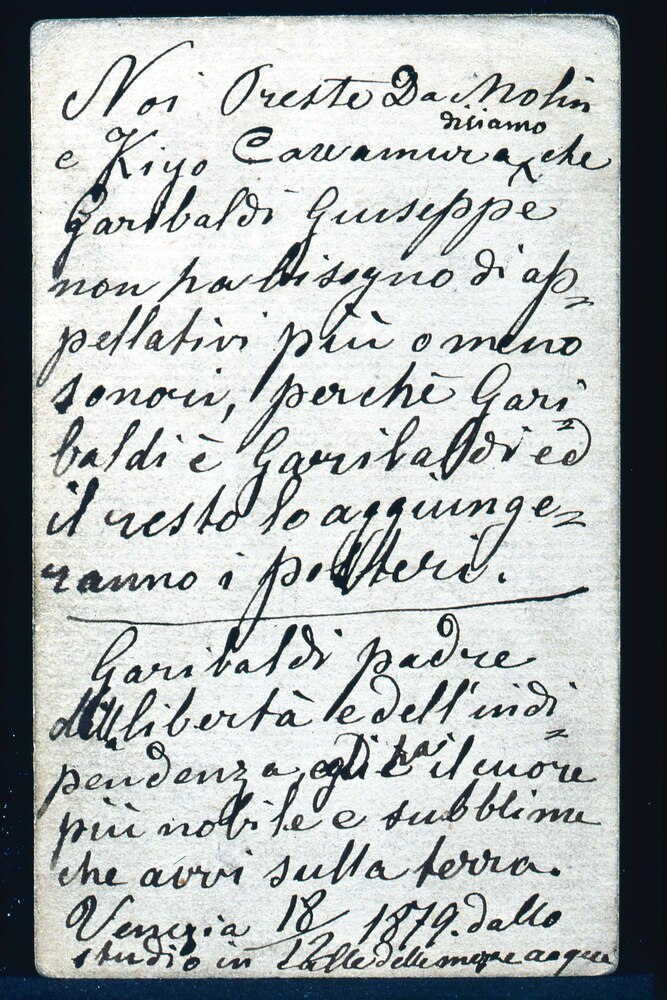 Noi Oreste Da Molin
diciamo
e Kiyo Cawamura che
Garibaldi Giuseppe
non ha bisogno di ap=
pellativi più o meno
sonori, perchè Gari=
baldi è Garibaldi ed
il resto lo aggiunge=
ranno i posteri.
Garibaldi padre
della libertà e dell'indi=
pendenza egli ha il cuore
più nobile e subblime
che avvi sulla terra.
Venezia 18/12 1879. dallo
studio in Calle delle acque